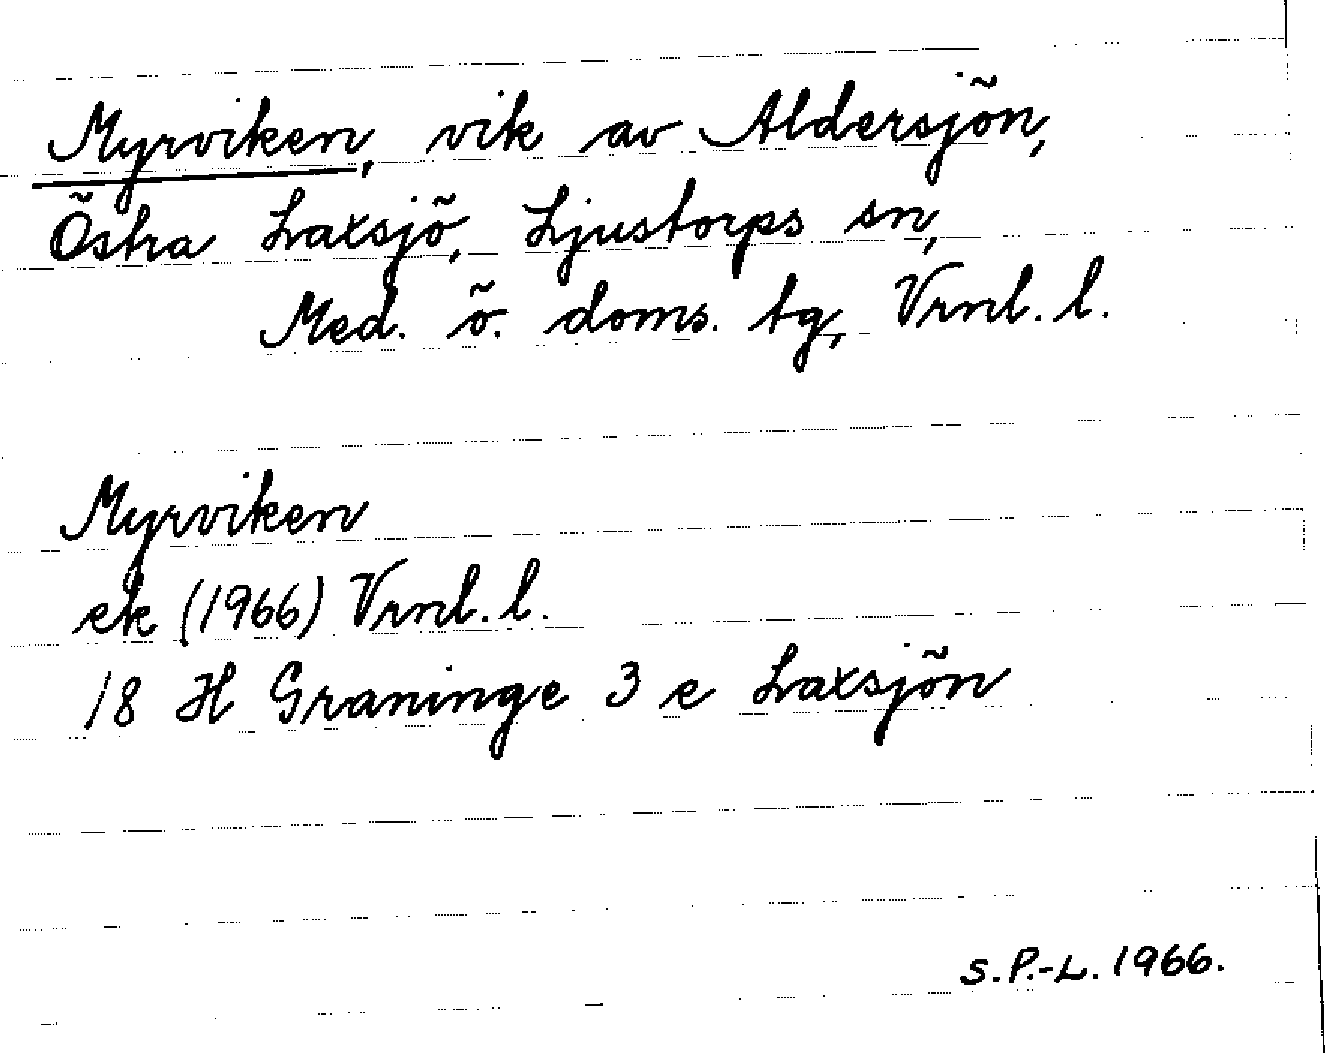 Myrviken, vik av Aldersjön,
Östra Laxsjö, Ljustorps sn,
Med. ö. doms. tg, Vrnl. l.
Myrviken
ek (1966) Vrnl. l.
18 H Graninge 3 e Laxsjön
S. P.-L. 1966.